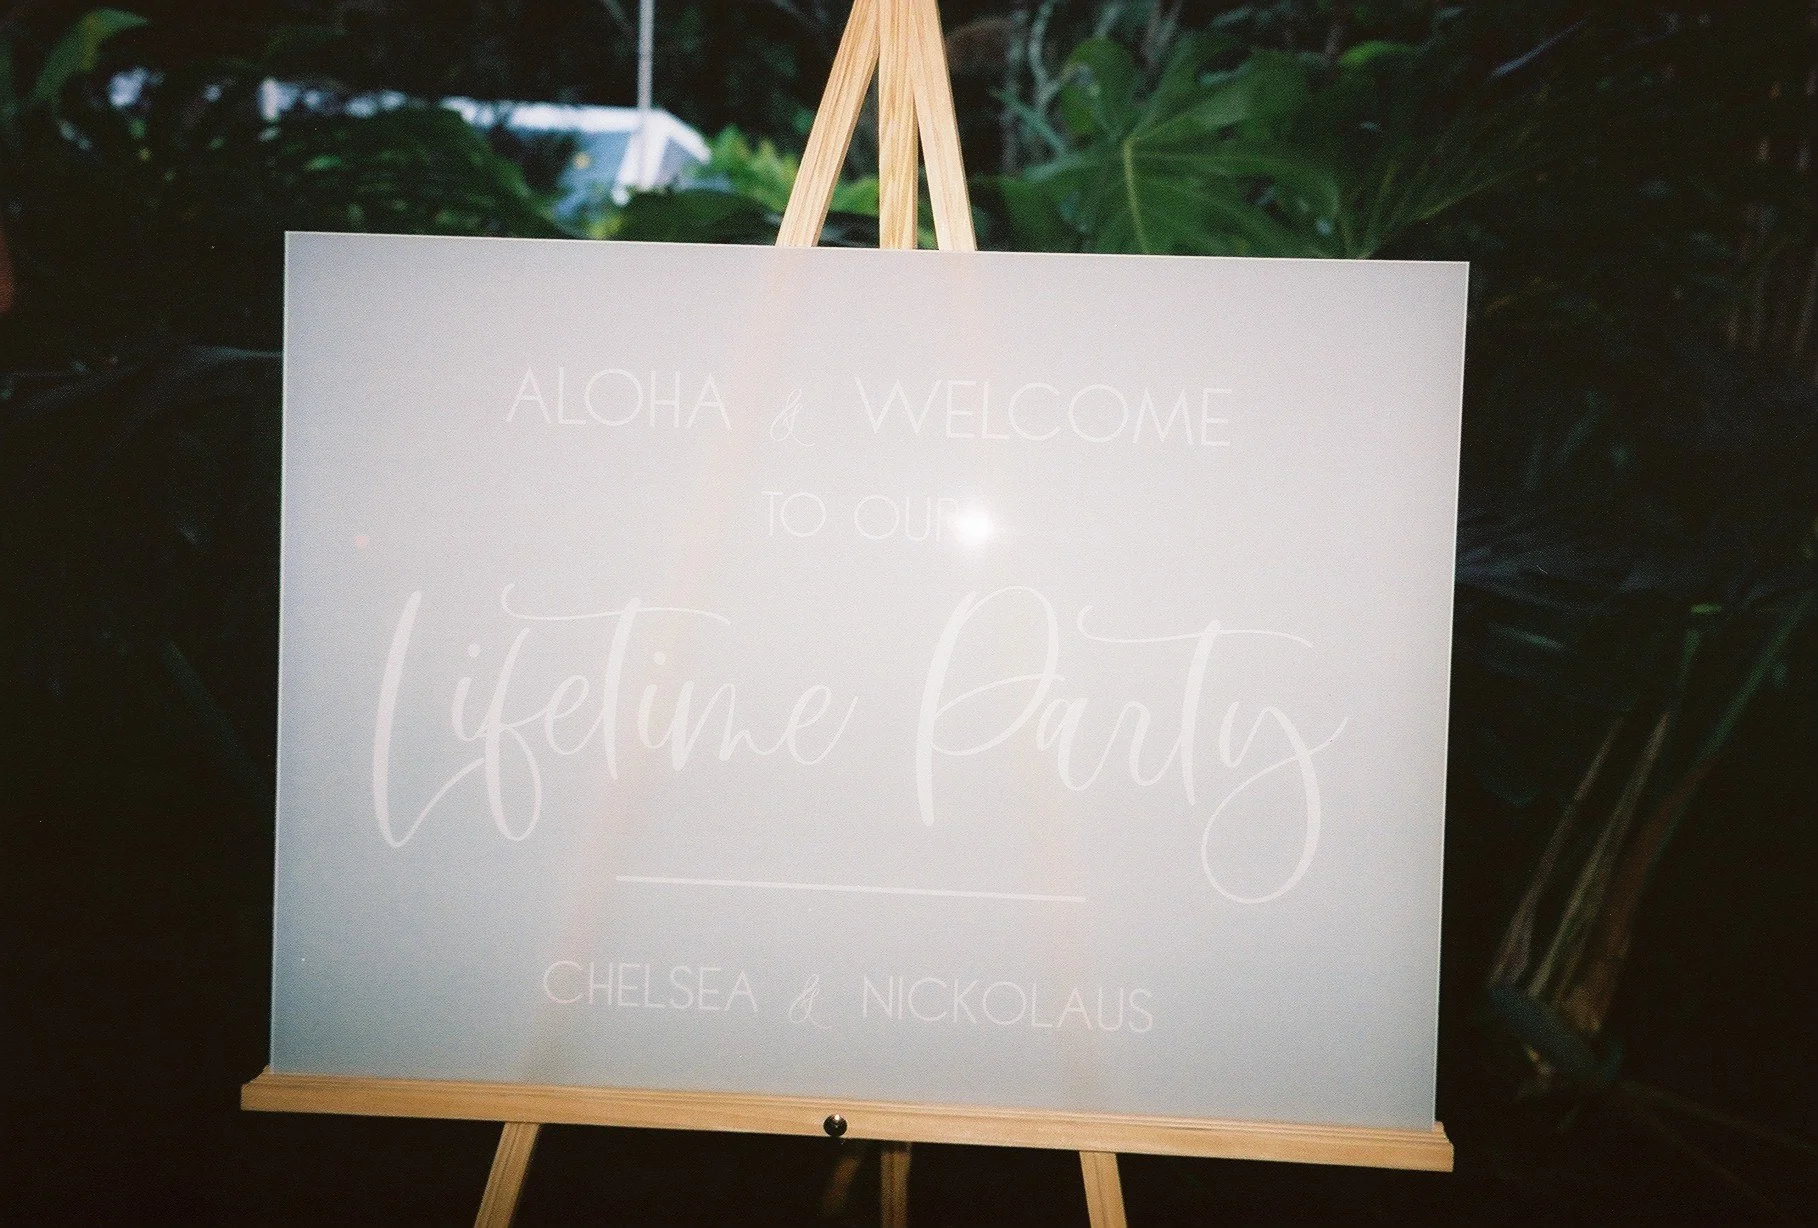 ALOHA & WELCOME
TO OUR
Lifetime Party
CHELSEA & NICKOLAUS